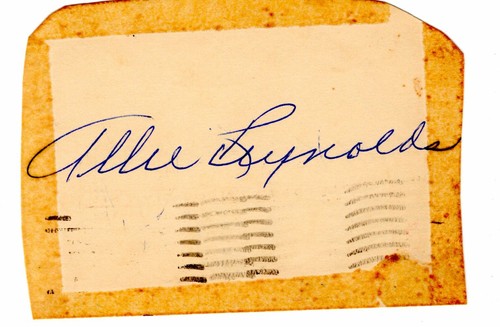 Allie Reynolds